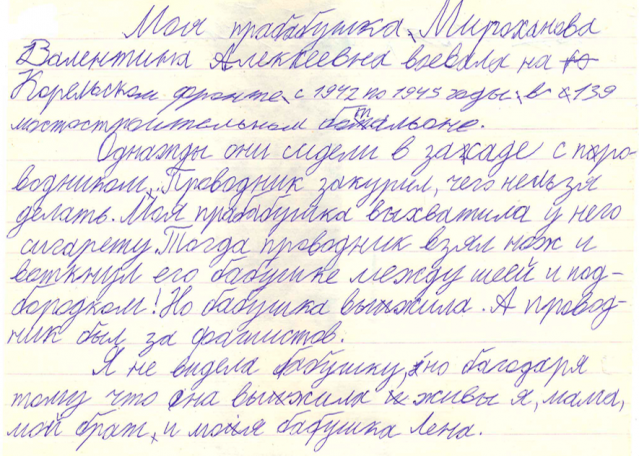 Моя прабабушка, Мироханова
Валентина Алексеевна воевала на
Корельском фронте, с 1942 по 1945 годы, в 139
мостостроительном батальоне.
Однажды они сидели в засаде с про-
водником. Проводник закурил, чего нельзя
делать. Моя прабабушка выхватила у него
сигарету. Тогда проводник взял нож и
воткнул его бабушке между шеей и под-
бородком! Но бабушка выжила. А провод-
ник был за фашистов.
Я не видела бабушку, но багодаря
тому что она выжила живы я, мама,
мой брат, и моя бабушка Лена.